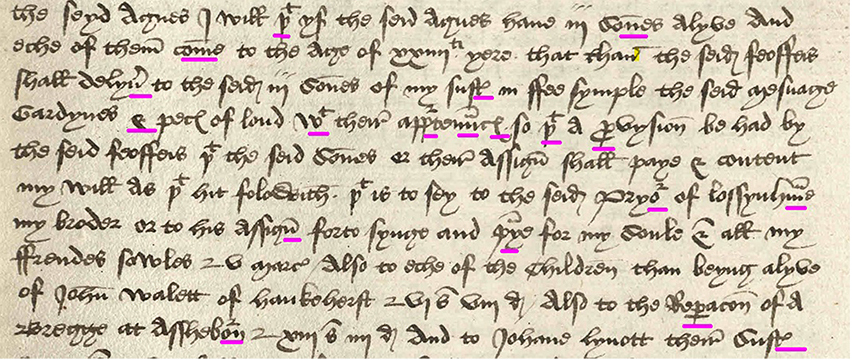 the seyd Agnes I will þt yf the seid Agnes have iij Sones alyve And
eche of them come to the Age of xxiiijti yere that than the seid feoffeis
shall delyu to the seid iij Sones of my sust in ffee symple the seid mesuage
Gardynes & pec of lond wt their apprtennc so þt A pvysion be had by
the seid feoffeis þt the seid Sones or their Assign shall paye & content
my will As þt hit folowith þt is to sey to the seid Pryor of
my broder or to his Assign forto synge and prye for my Soule & all my
ffrendes sowles v marc Also to eche of the Children than beyng alyve
of John Walett of haukeherst vi s viij d Also to the Repacon of A
Bregge at Assheborn xiij s iiij d And to Johane lynott their Sust